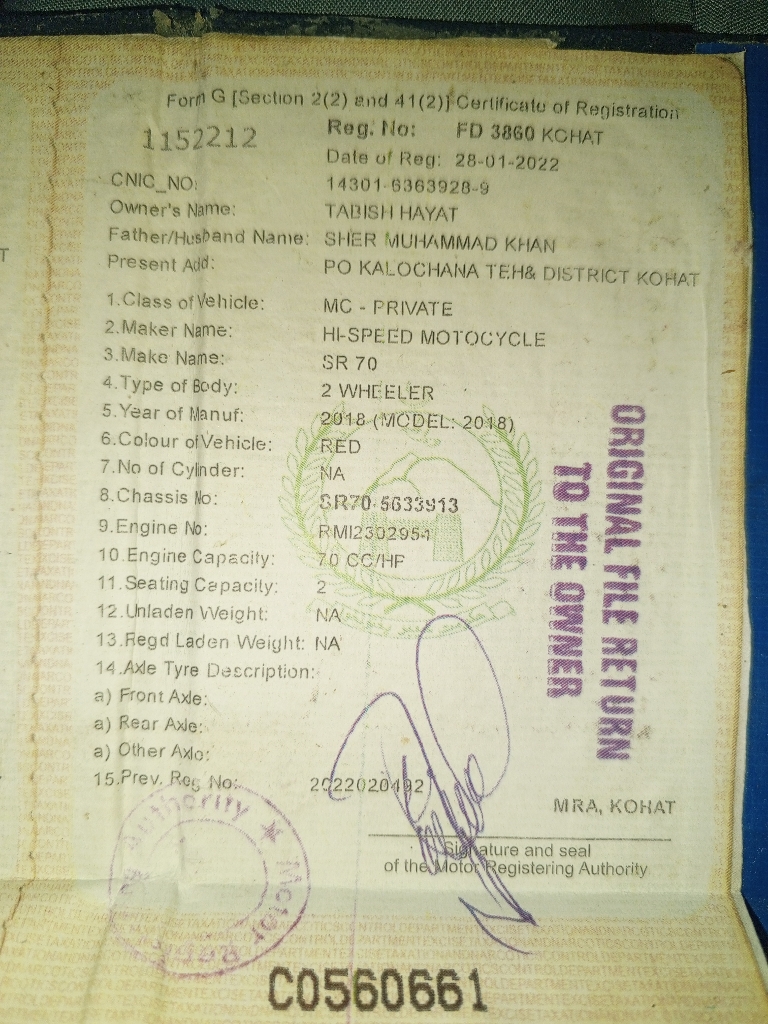 Form G [Section 2(2) and 41(2)] Certificate of Registration
1152212
Reg. No: FD 3860 KOHAT
Date of Reg: 28-01-2022
CNIC_NO: 14301-6363928-9
Owner's Name: TABISH HAYAT
Father/Husband Name: SHER MUHAMMAD KHAN
Present Add: PO KALOCHANA TEH& DISTRICT KOHAT
1.Class of Vehicle: MC - PRIVATE
2.Maker Name: HI-SPEED MOTOCYCLE
3.Make Name: SR 70
4.Type of Body: 2 WHEELER
5.Year of Manuf: 2018 (MODEL: 2018)
6.Colour of Vehicle: RED
7.No of Cylinder: NA
8.Chassis No: SR70-5633913
9.Engine No: RMI2302951
10.Engine Capacity: 70 CC/HP
11.Seating Capacity: 2
12.Unladen Weight: NA
13.Regd Laden Weight: NA
14.Axle Tyre Description:
a) Front Axle:
a) Rear Axle:
a) Other Axle:
15.Prev. Reg No: 2022020492
ORIGINAL FILE RETURN
TO THE OWNER
MRA, KOHAT
Signature and seal
of the Motor Registering Authority
Authority ★ Motor
C0560661